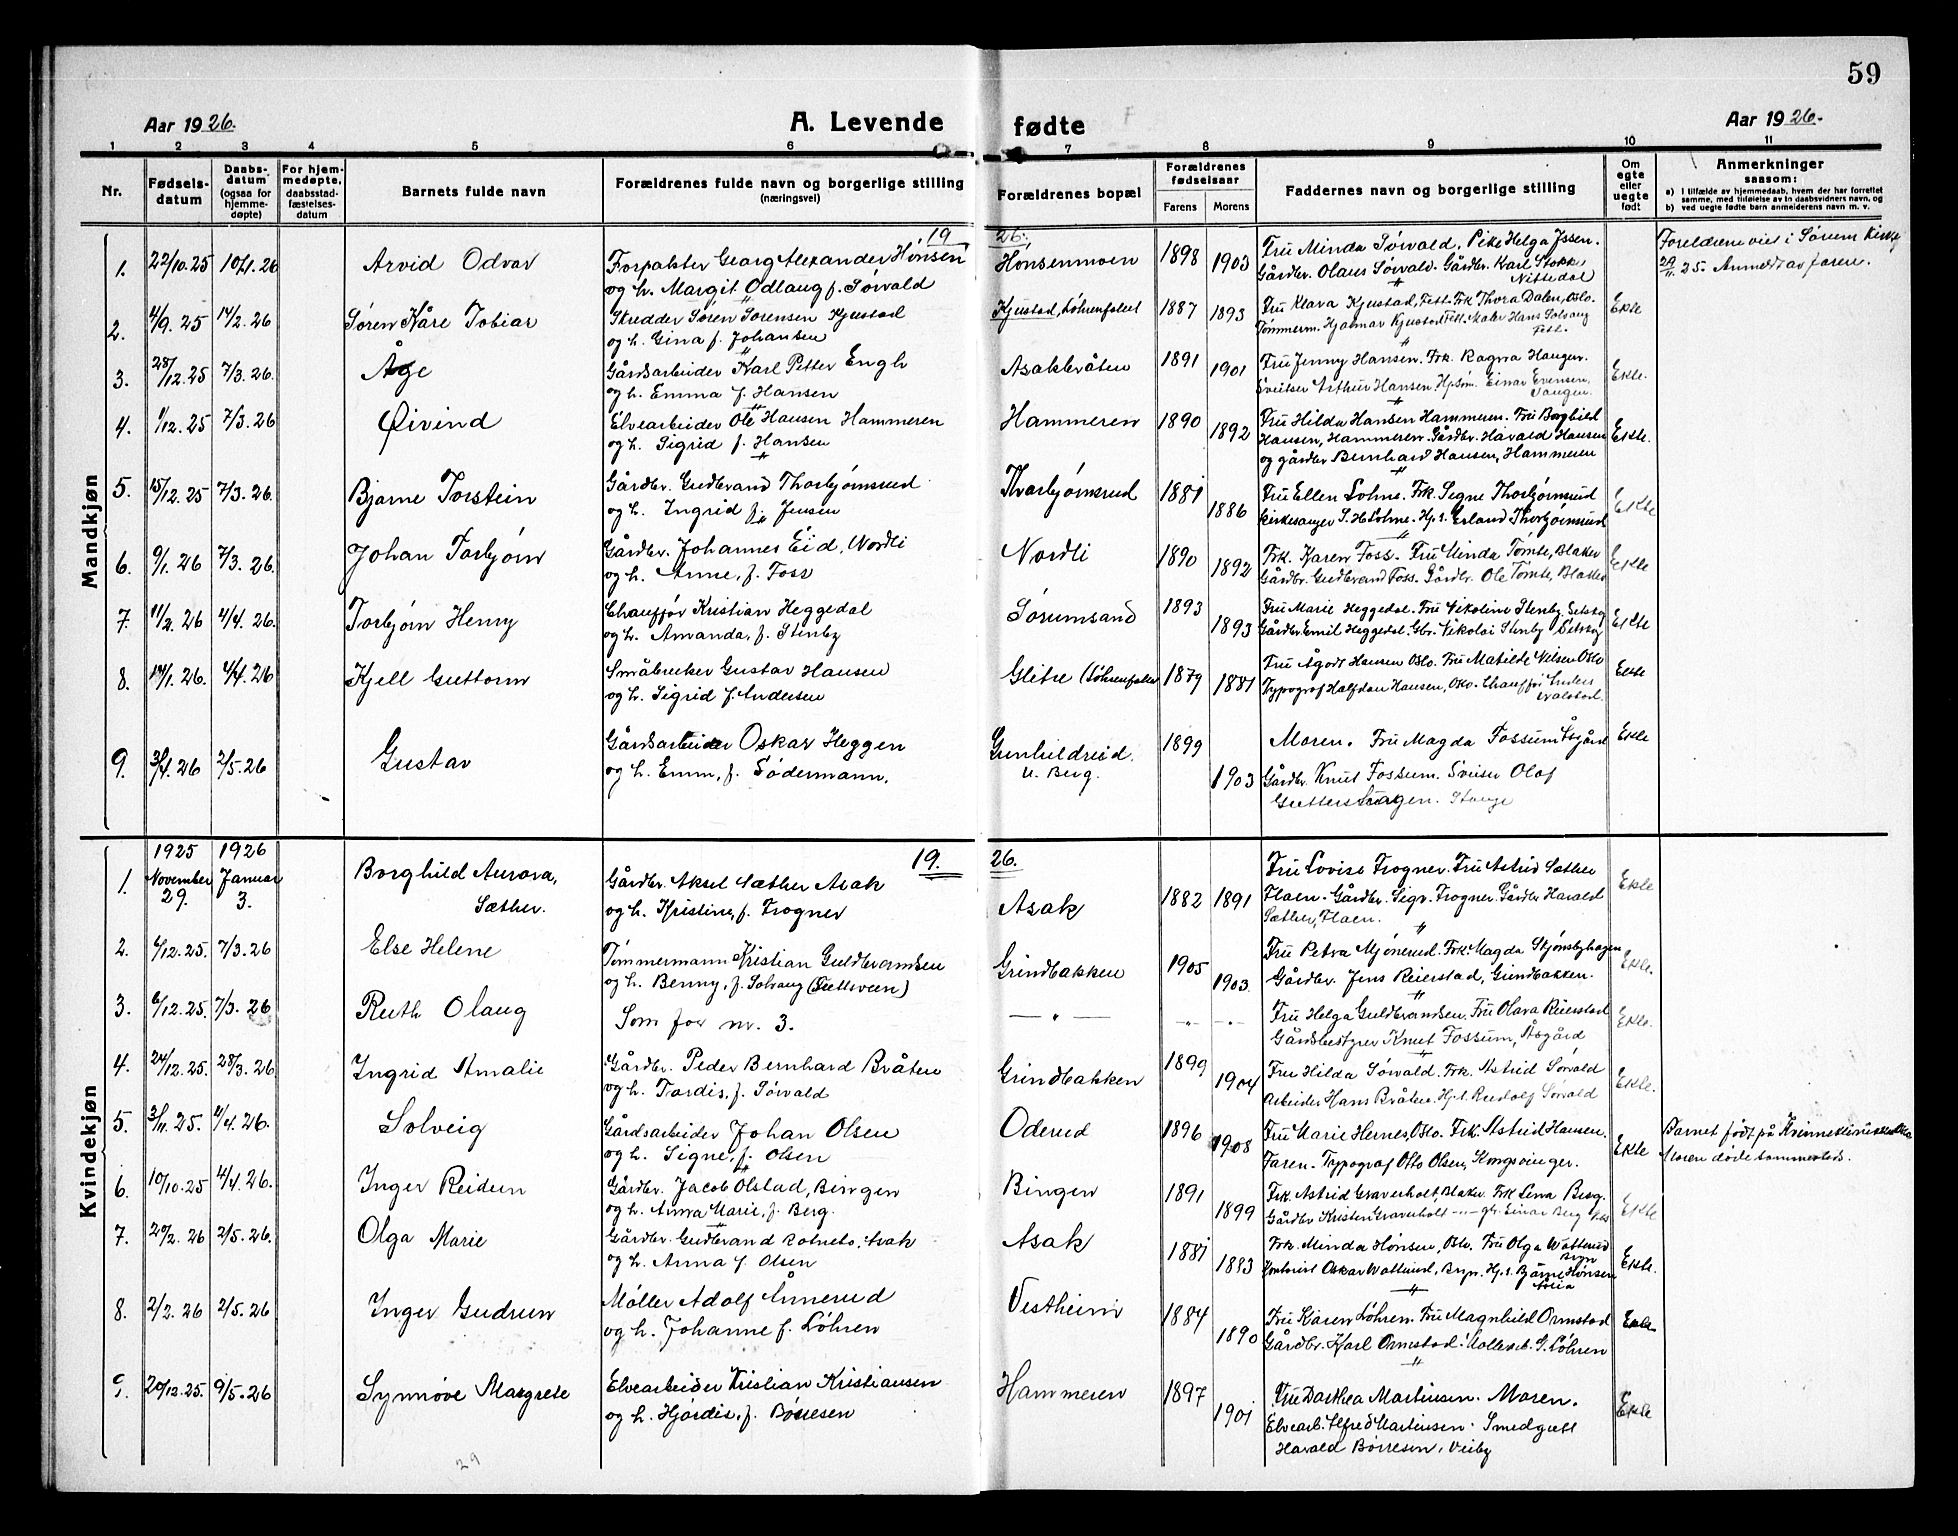 59
Aar 1926. A. Levende fødte Aar 1926.
1 2 3 4 5 6 7 8 9 10 11
Nr. Fødsels-datum Daabs-datum (ogsaa for hjemme-døpte) For hjem-medøpte, daabsstad-fæstelses-datum Barnets fulde navn Forældrenes fulde navn og borgerlige stilling (næringsvei) Forældrenes bopæl Forældrenes fødselsaar Farens Morens Faddernes navn og borgerlige stilling Om egte eller uegte født Anmerkninger saasom:
a) I tilfælde av hjemmedaab, hvem der har forrettet samme, med tilføielse av to daabsvidners navn, og
b) ved uegte født barn anmelderens navn m. v.
Mandkjøn
19 26.
1. 22/10.25 10/1.26 Arvid Odvar Forpakter Georg Alexander Hønsen Hønsenmoen 1898 1903 Fru Minda Sørvald. Pike Helga Issen. Foreldrene viet i Sørum Kirke
og h. Margit Odlaug f. Sørvald Gårdbr. Olaus Sørvald. Gårdbr. Karl Stokk Nittedal 29/11.25. Anmeldt av faren.
2. 4/9.25 14/2.26 Søren Kåre Tobiar Skredder Søren Sørensen Kjustad Kjustad, Løhrenfallet 1887 1893 Fru Klara Kjustad, Fett. Frk Thora Dalen, Oslo. Ekte
og h. Gina f. Johansen Tømmerm. Hjalmar Kjustad Fett. Maler Hans Solvang Fett.
3. 28/12.25 7/3.26. Åge Gårdsarbeider Karl Petter Engh Asakbråten 1891 1901 Fru Jenny Hansen. Frk. Ragna Hauger. Ekte.
og h. Emma f. Hansen Sveitser Arthur Hansen. Hp.søn. Einar Evensen,
4. 1/12.25 7/3.26 Øivind Elvearbeider Ole Hansen Hammeren Hammeren 1890 1892 Fru Hilda Hansen Hammeren. Fru Borghild Ekte.
og h. Sigrid f. Hansen Hansen, Hammeren. Gårdbr. Harald Hansen
og gårdbr Bernhard Hansen, Hammeren
5. 15/12.25 7/3.26. Bjarne Torstein Gårdbr. Gudbrand Thorbjørnsrud Thorbjørnsrud 1881 1886 Fru Ellen Lohne. Frk. Signe Thorbjørnsrud Ekte
og h. Ingrid f. Jensen Kirkesanger S. H. Lohne. Hp.s. Erland Thorbjørnsrud
6. 9/1.26 7/3.26. Johan Torbjørn Gårdbr. Johannes Eid, Nordli Nordli 1890 1892 Frk. Karen Foss. Fru Minda Tømte, Blaker Ekte
og h. Anne, f. Foss Gårdbr. Gudbrand Foss. Gårdbr. Ole Tømte, Blaker
7. 11/2.26 4/4.26. Torbjørn Henry Chauffør Kristian Heggedal Sørumsand 1893 1893 Fru Marie Heggedal. Fru Nikoline Stenby Setskog Ekte
og h. Amanda, f. Stenby Gårdbr. Emil Heggedal. Gbr. Nikolai Stenby Setskog
8. 14/1.26. 4/4.26 Kjell Guttorm Småbruker Gustav Hansen Glitre (Løhrenfallet 1879 1881 Fru Ågodt Hansen Oslo. Fru Matilde Nilsen Oslo Ekte
og h. Sigrid f. Andersen Typograf Halfdan Hansen, Oslo. Chauffør
9. 3/4.26 2/5.26 Gustav Gårdsarbeider Oskar Heggen Gunhildrud 1899 1903 Moren. Fru Magda Fossum Åsgård Ekte
og h. Emm, f. Södermann. u. Berg. Gårdbr. Knut Fossum. Sveiser Olof
Stange
Kvindekjøn
1925 1926 19. 26.
1. November 29. Januar 3. Borghild Aurora, Sæther. Gårdbr. Aksel Sæther Asak Asak 1882 1891 Fru Lovise Trogner. Fru Astrid Sæther Ekte
og h. Kristine, f. Trogner Flaen. Gårdbr. Sigv. Trogner. Gårdbr Harald
Sæther, Flaen.
2. 6/12.25. 7/3.26 Else Helene Tømmermann Kristian Guldbrandsen Grindbakken 1905 1903. Fru Petra Mjønerud. Frk. Magda Stjønsbyhagen Ekte.
og h. Benny, f. Solvang (Tuttsveen) Gårdbr. Jens Reierstad, Grindbakken.
3. 6/12.25. 7/3.26 Ruth Olaug Som for nr. 3. — " — - " - - " - Fru Helga Guldbrandsen. Fru Olava Reierstad Ekte.
Gårdsbestyrer Knut Fossum, Åsgård
4. 24/12.25. 28/3.26 Ingrid Amalie Gårdbr. Peder Bernhard Bråten Grindbakken 1899 1904 Fru Hilda Sørvald. Frk. Astrid Sørvald Ekte.
og h. Tordis, f. Sørvald Arbeider Hans Bråten. Hp.s. Rudolf Sørvald
5. 3/11.25. 4/4.26. Solveig Gårdsarbeider Johan Olsen Oderud 1896 1908 Fru Marie Hernes, Oslo. Frk. Astrid Hansen. Ekte Barnet født på Kvinneklinikken Oslo
og h. Signe, f. Olsen Faren. Typograf Otto Olsen, Kongsvinger. Moren døde sammesteds.
6. 10/10.25 4/4.26. Inger Reidun Gårdbr. Jacob Ølstad, Bingen Bingen 1891 1899 Frk. Astrid Graverholt, Blaker. Frk Lena Berg. Ekte
og h. Anna Marie, f. Berg. Gårdbr Kristen Graverholt -"- gbr. Einar Berg
7. 20/2.26 2/5.26. Olga Marie Gårdbr. Gudbrand Rotnets, Asak Asak 1881 1883 Frk. Minda Hønsen, Blv. Fru Olga Watterud Bryn Ekte.
og h. Anna f. Olsen Kontorist Oskar Watterud, Bryn. Hp.s. Bjarne Hønsen
8. 2/2.26 2/5.26 Inger Gudrun Møller Adolf Ånnerud Vestheim 1884 1890 Fru Karen Løhren. Fru Magnhild Ormstad Ekte
og h. Johanne f. Løhren Gårdbr. Karl Ormstad. Mølleeb. G. Løhren
9. 20/12.25. 9/5.26 Synnøve Margrete Elvearbeider Kristian Kristiansen Hammeren 1897 1901 Fru Dorthea Martinsen. Moren. Ekte
og h. Hjørdis, f. Børresen Elvearb. Alfred Martinsen. Smedgutt
Harald Børresen, Veiby
29